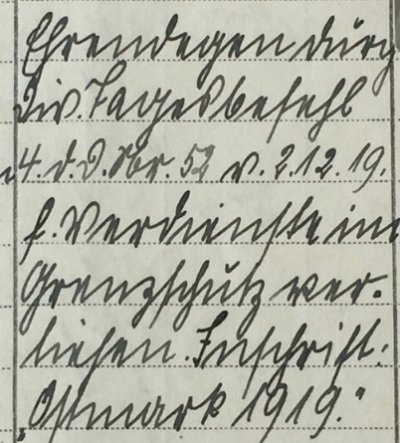 Ehrendegen durch
Div. Tagesbefehl
4. d. D. Nr. 52 v. 2.12.19.
f. Verdienste im
Grenzschutz ver-
liehen. Inschrift:
„Ostmark 1919.“